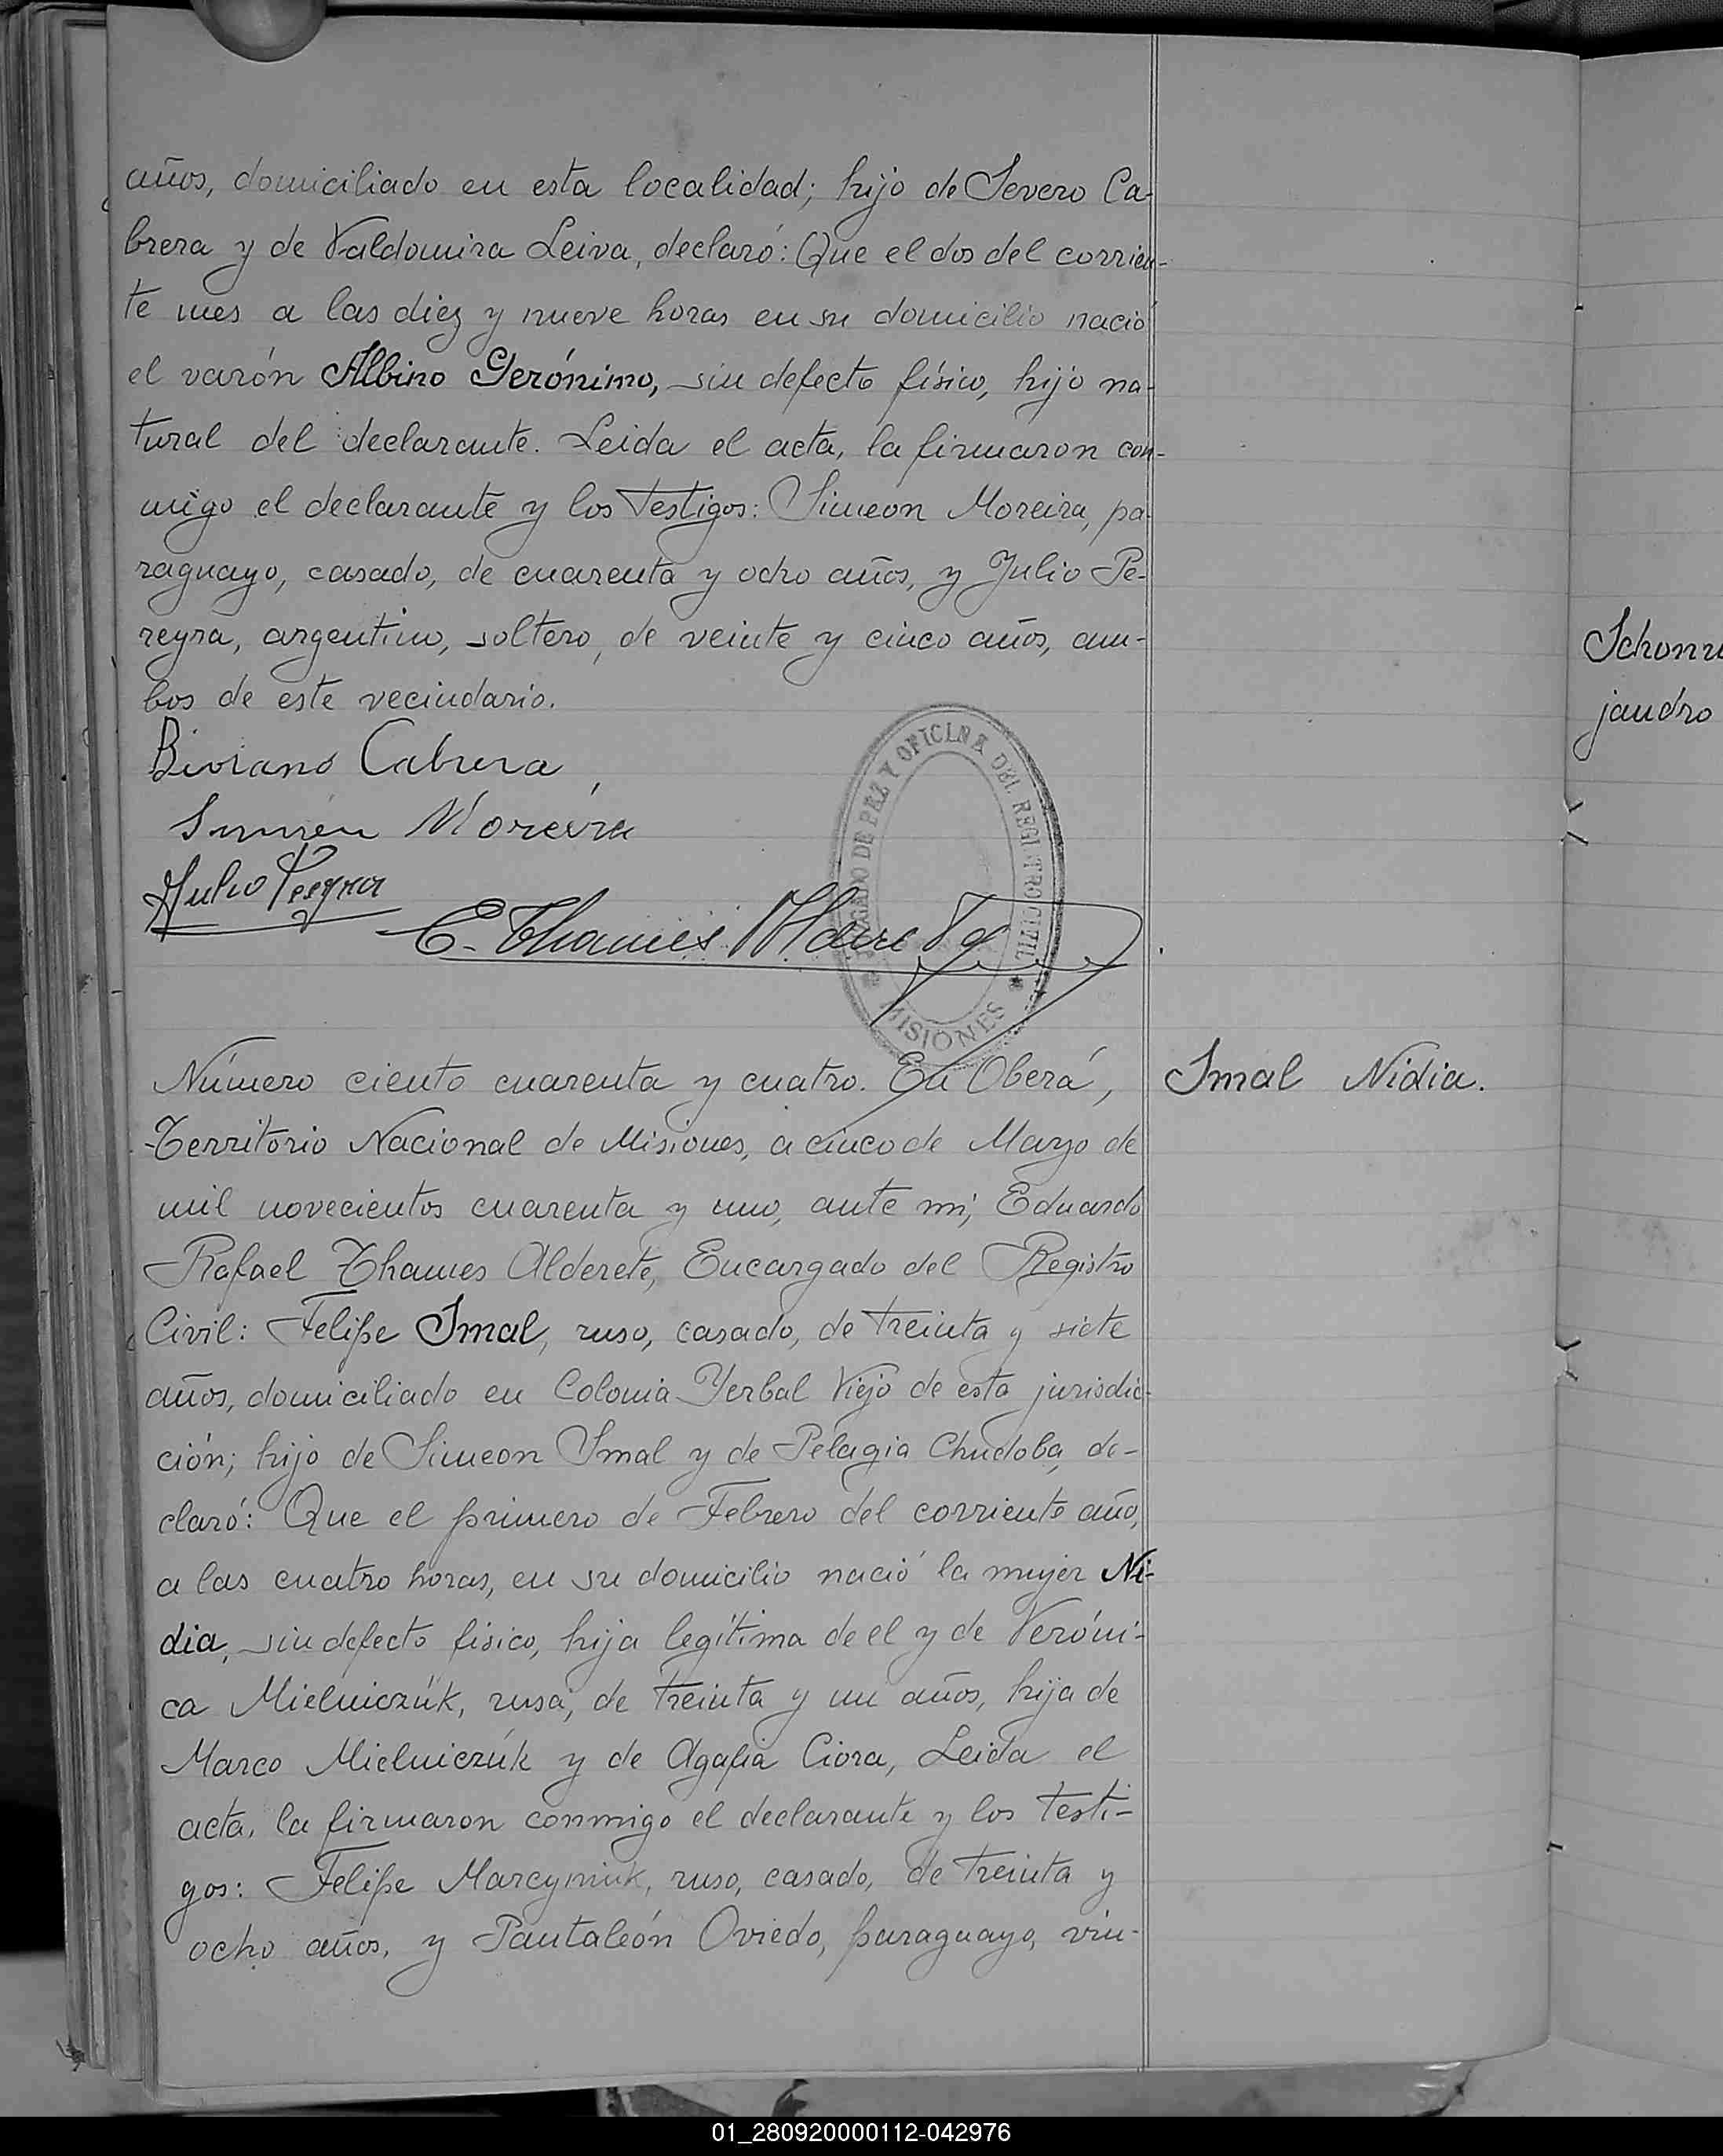 años, domiciliado en esta localidad; hijo de Severo Ca-
brera y de Valdomira Leiva, declaró: Que el dos del corrien-
te mes a las diez y nueve horas en su domicilio nació
el varón Albino Gerónimo, sin defecto físico, hijo na-
tural del declarante. Leida el acta, la firmaron con-
migo el declarante y los testigos: Simeon Moreira, pa-
raguayo, casado, de cuarenta y ocho años, y Julio Pe-
reyra, argentino, soltero, de veinte y cinco años, am-
bos de este vecindario.
Biviano Cabrera
Simien Moreira
Julio Pereyra
E. Thames Alderete
JUZGADO DE PAZ Y OFICINA DEL REGISTRO CIVIL
MISIONES
Número ciento cuarenta y cuatro. En Oberá,
Smal Nidia.
Territorio Nacional de Misiones, a cinco de Marzo de
mil novecientos cuarenta y uno, ante mi, Eduardo
Rafael Thames Alderete, Encargado del Registro
Civil: Felipe Smal, ruso, casado, de treinta y siete
años, domiciliado en Colonia Yerbal Viejo de esta jurisdic-
ción; hijo de Simeon Smal y de Pelagia Chudoba, de-
claró: Que el primero de Febrero del corriente año,
a las cuatro horas, en su domicilio nació la mujer Ni-
dia, sin defecto físico, hija legítima de el y de Veróni-
ca Mielniczúk, rusa, de treinta y un años, hija de
Marco Mielniczúk y de Agafia Ciora, Leida el
acta, la firmaron conmigo el declarante y los testi-
gos: Felipe Marcyniuk, ruso, casado, de treinta y
ocho años, y Pantaleón Oviedo, paraguayo, viu-
Schonn
jandro
01_280920000112-042976